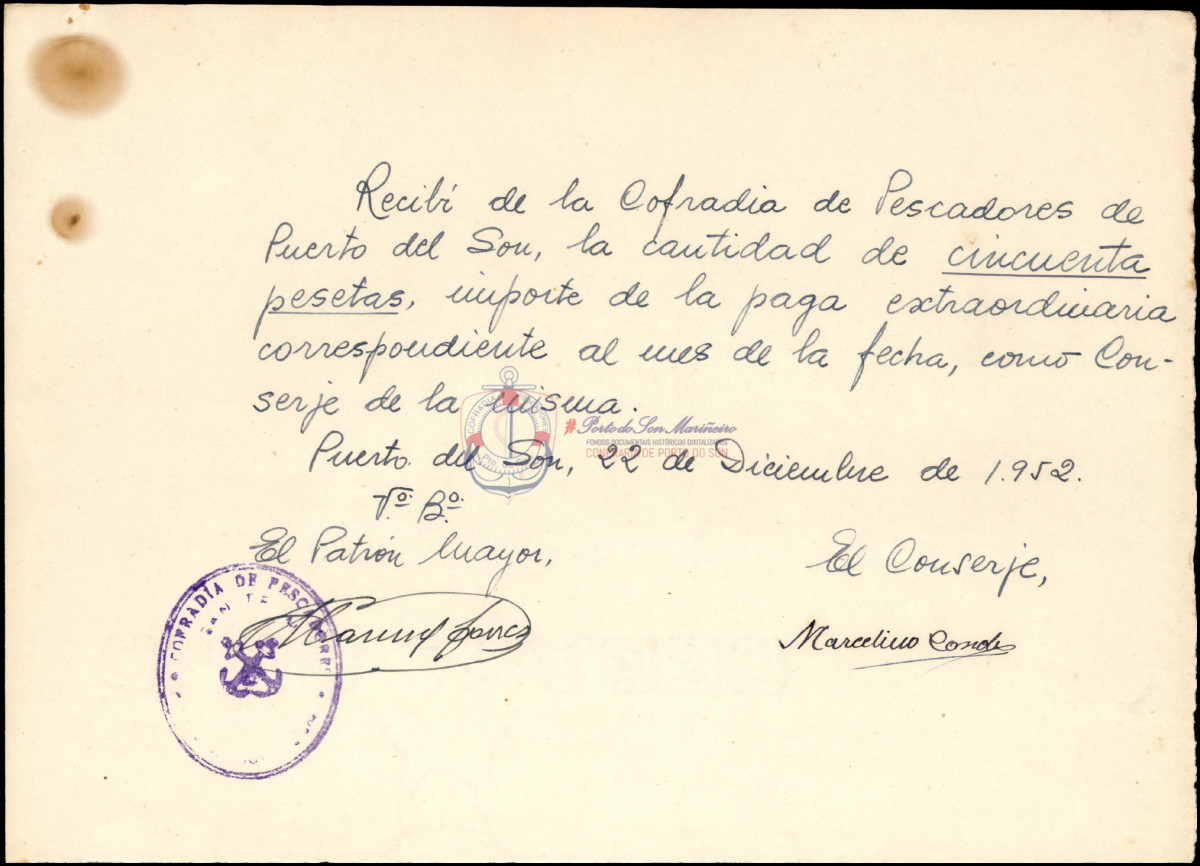 Recibí de la Cofradia de Pescadores de
Puerto del Son, la cantidad de cincuenta
pesetas, importe de la paga extraordinaria
correspondiente al mes de la fecha, como Con-
serje de la misma.
#PortodoSonMariñeiro
FONDOS DOCUMENTAIS HISTÓRICOS DIXITALIZADOS
CONFRARÍA DE PORTO DO SON
Puerto del Son, 22 de Diciembre de 1.952.
Vº Bº
El Patrón Mayor,
El Conserje,
COFRADÍA DE PESCADORES
Manuel
Marcelino Conde